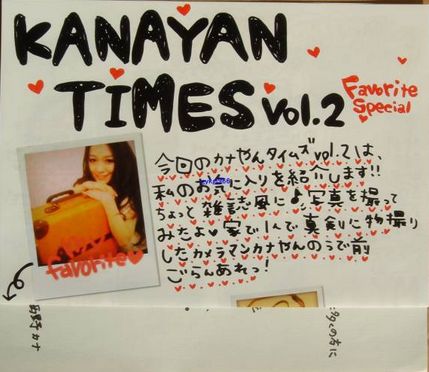 KANAYAN
TIMES Vol.2
Favorite
Special
今回のカナやんタイムズvol.2は、
私のお気に入りを紹介します!!
ちょっと雑誌風に♪写真を撮って
みたよ♥家で1人で真剣に物撮り
したカメラマンカナやんのうで前
ごらんあれっ!
favorite
野カナ
多くの方に